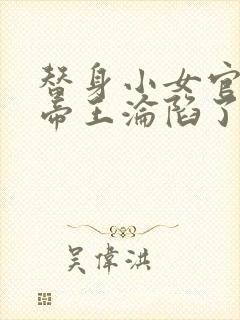 替身小女官
帝王淪陷了
吳偉洪